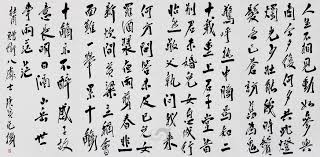 人生不相見動如參與
商今夕復何夕共此燈
燭光少壯能幾時鬢
髮各已蒼訪舊半為鬼
驚呼熱中腸焉知二
十載重上君子堂昔
別君未婚兒女忽成
行怡然敬父執問我來
何方問答未及已兒女
羅酒漿夜雨剪春韭
新炊間黃粱主稱會
面難一舉累十觴
十觴亦不醉感子故
意長明日隔山岳世
事兩茫茫
杜甫贈衛八處士